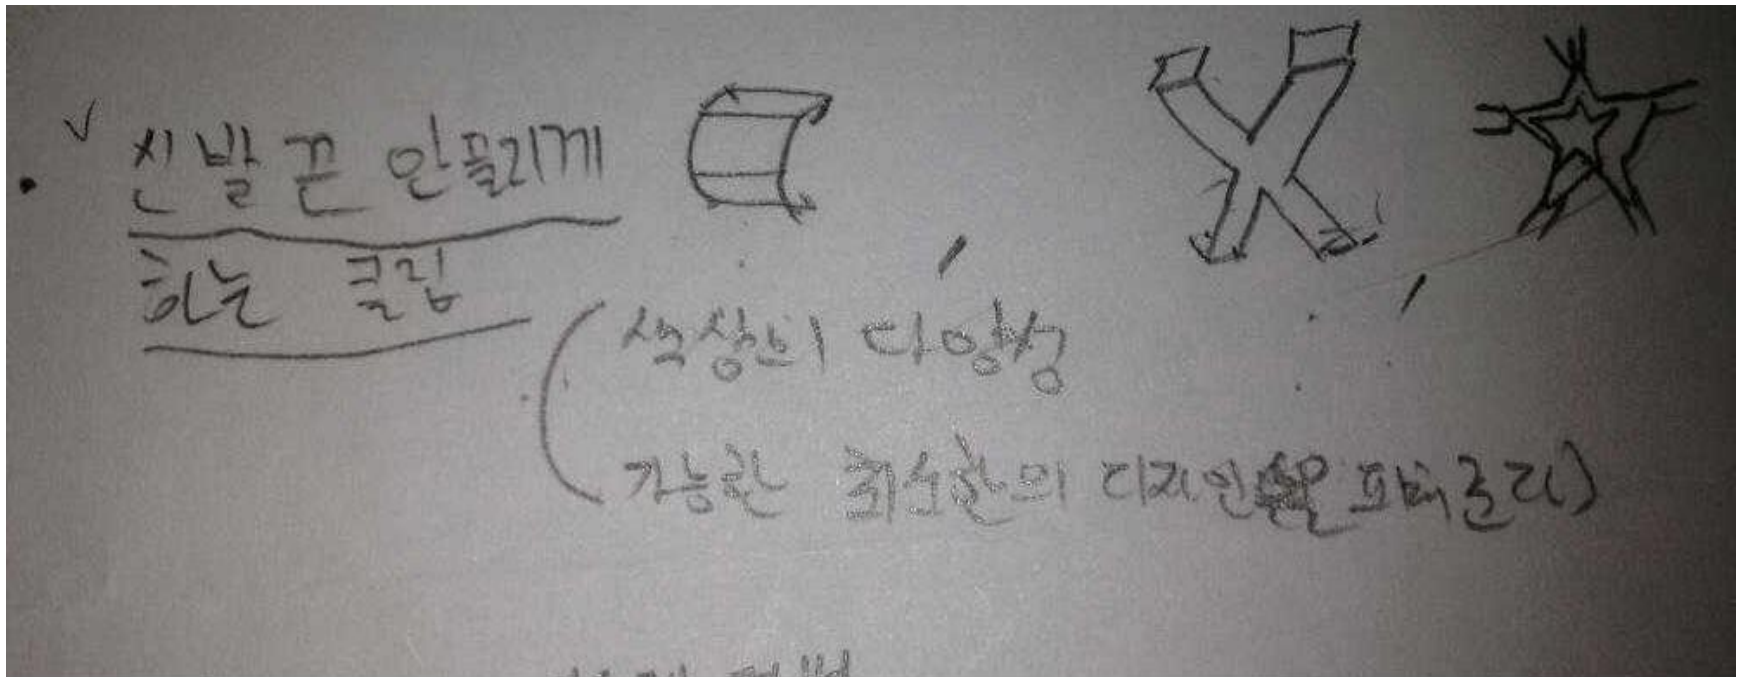 신발끈 안풀리게
하는 클립
색상의 다양성
가능한 최소한의 디자인